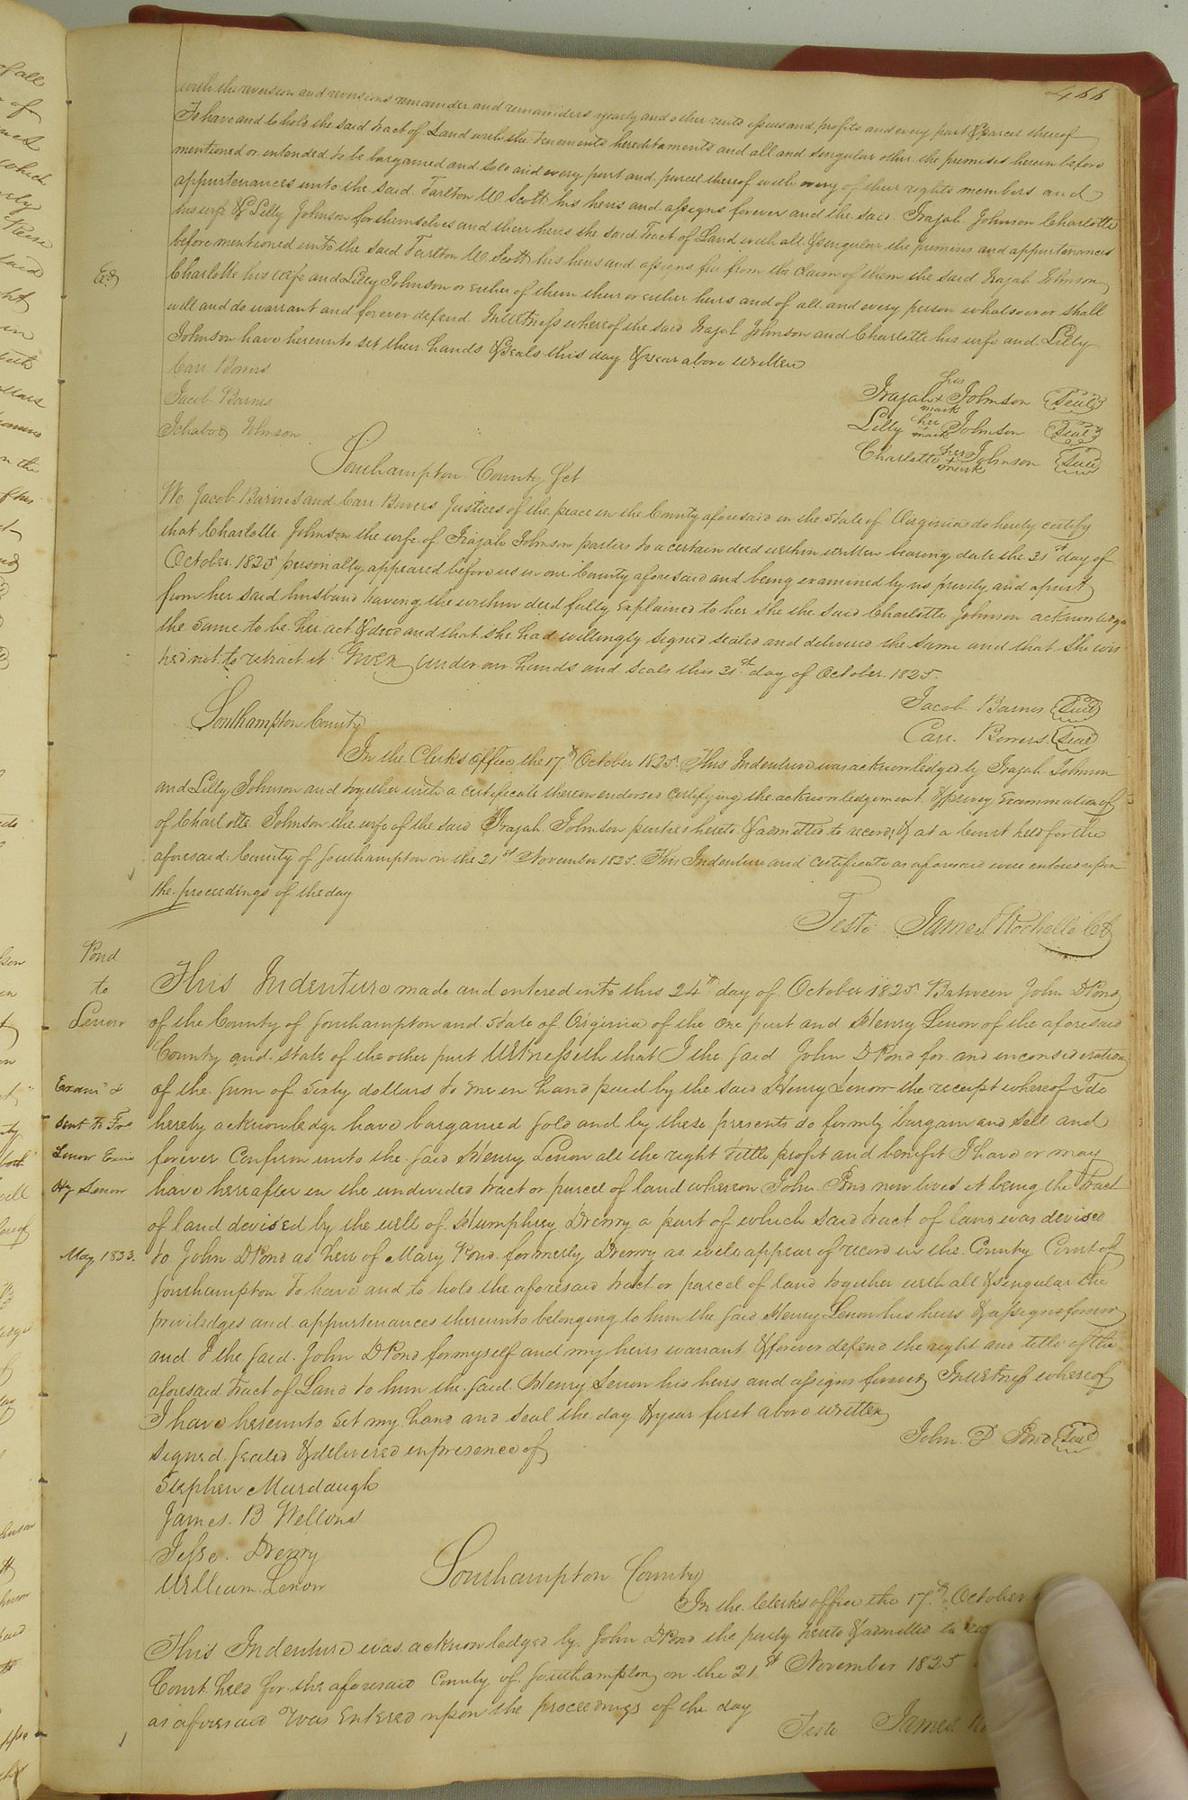 466
with the reversion and reversions remainder and remainders yearly and other rents issues and profits and every part & parcel thereof
To have and to hold the said tract of Land with the tenements hereditaments and all and singular other the premises herein before
mentioned or entended to be bargained and sold and every part and parcel thereof with every of their rights members and
appurtenances unto the said Tarlton W Scott his heirs and assigns forever and the said Irajah Johnson Charlotte
his wife & Lilly Johnson for themselves and their heirs the said Tract of Land with all & singular the premises and appurtenances
before mentioned unto the said Tarlton W Scott his heirs and assigns free from the claim of them the said Irajah Johnson
Charlotte his wife and Lilly Johnson or either of them their or either heirs and of all and every person whatsoever shall
will and do warrant and forever defend. In witness whereof the said Irajah Johnson and Charlotte his wife and Lilly
Johnson have hereunto set their hands & seals this day & year above written
Carr Bowers
Jacob Barnes
Ichabod Johnson
Irajah his + mark Johnson (Seal)
Lilly her mark Johnson (Seal)
Charlotte her + mark Johnson (Seal)
Southampton County Sct
We Jacob Barnes and Carr Bowers Justices of the peace in the County aforesaid in the State of Virginia do hereby certify
that Charlotte Johnson the wife of Irajah Johnson parties to a certain deed within written bearing date the 21st day of
October 1825 personally appeared before us in our County aforesaid and being examined by us privily and apart
from her said husband having the within deed fully Explained to her She the said Charlotte Johnson acknowledge
the same to be her act & deed and that she had willingly signed sealed and delivered the same and that She wis
hed not to retract it Given under our hands and seals this 21st day of October 1825.
Jacob Barnes (Seal)
Carr Bowers (Seal)
Southampton County
In the Clerks office the 17th October 1825 This Indenture was acknowledged by Irajah Johnson
and Lilly Johnson and together with a certificate thereon endorsed certifying the acknowledgement & privy Examination of
of Charlotte Johnson the wife of the said Irajah Johnson parties hereto & admitted to record, & at a Court held for the
aforesaid County of Southampton on the 21st November 1825. This Indenture and certificate as aforesaid were entered upon
the proceedings of the day
Teste James Rochelle CC
Pond
to
Lenow
Exam.d &
sent to
Lenow
Hy Lenow
May 1833.
This Indenture made and entered into this 24th day of October 1825 Between John D Pond
of the County of Southampton and State of Virginia of the one part and Henry Lenow of the aforesaid
County and state of the other part Witnesseth that I the said John D Pond for and in consideration
of the sum of Sixty dollars to me in hand paid by the said Henry Lenow the receipt whereof I do
hereby acknowledge have bargained sold and by these presents do formly bargain and sell and
forever Confirm unto the said Henry Lenow all the right title profit and benefit I have or may
have hereafter in the undivided tract or parcel of land whereon John Pond now lives it being the Tract
of land devised by the will of Humphrey Drewry a part of which said tract of land was devised
to John D Pond as heir of Mary Pond formerly Drewry as will appear of record in the County Court of
Southampton To have and to hold the aforesaid tract or parcel of land together with all & singular the
priviledges and appurtenances thereunto belonging to him the said Henry Lenow his heirs & assigns forever
and I the said John D Pond for myself and my heirs warrant & forever defend the right and title of the
aforesaid tract of Land to him the said Henry Lenow his heirs and assigns forever In witness whereof
I have hereunto set my hand and seal the day & year first above written
John D Pond (Seal)
Signed sealed & delivered in presence of
Stephen Murdaugh
James B Wellons
Jesse Drewry
William Lenow
Southampton County
In the Clerks office the 17th October
This Indenture was acknowledged by John D Pond the party hereto & admitted to
Court held for the aforesaid County of Southampton on the 21st November 1825
as aforesaid was Entered upon the proceedings of the day
Teste James